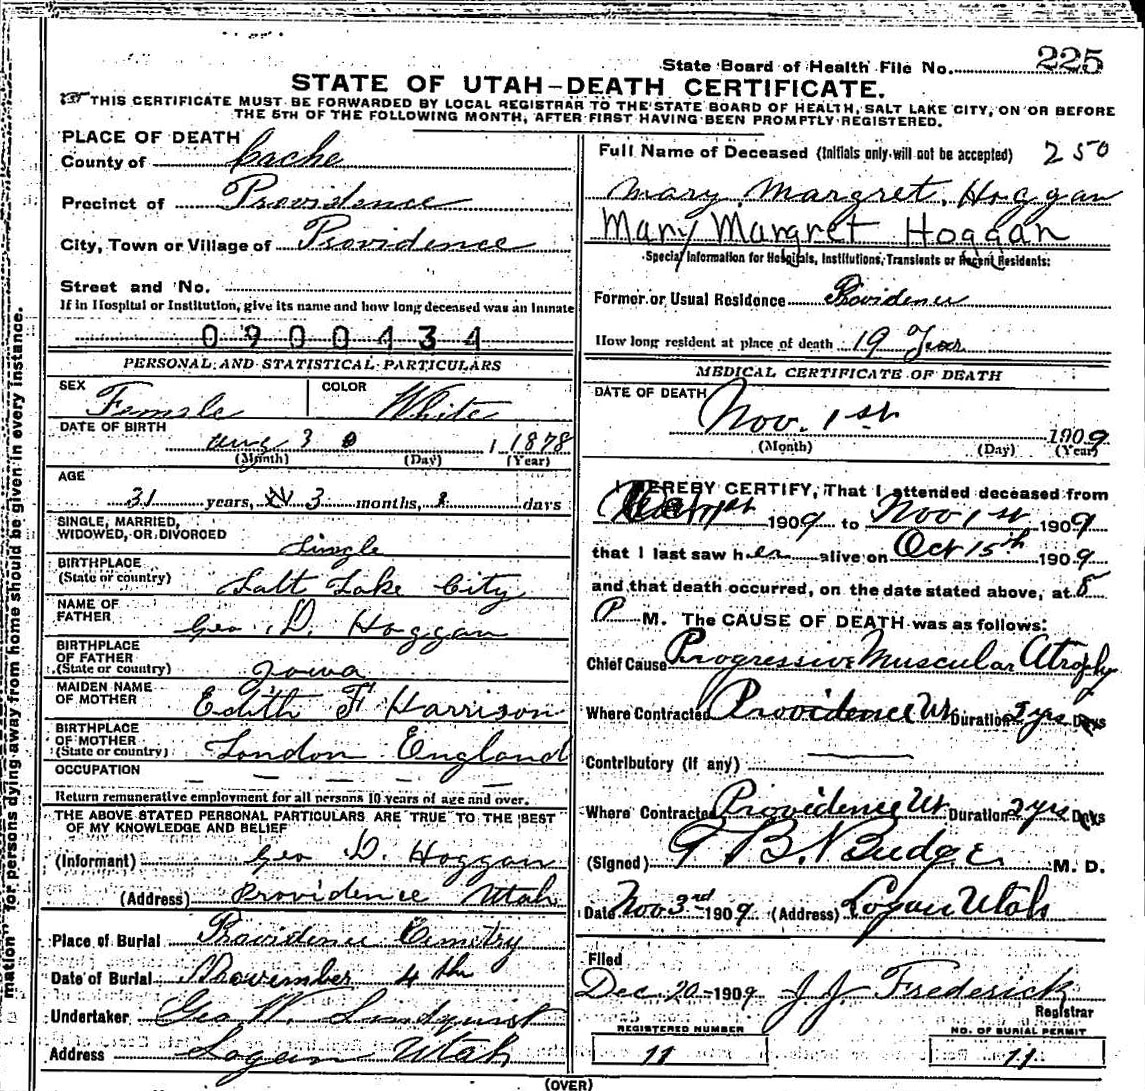 State Board of Health File No. 225
STATE OF UTAH-DEATH CERTIFICATE.
THIS CERTIFICATE MUST BE FORWARDED BY LOCAL REGISTRAR TO THE STATE BOARD OF HEALTH, SALT LAKE CITY, ON OR BEFORE
THE 5TH OF THE FOLLOWING MONTH, AFTER FIRST HAVING BEEN PROMPTLY REGISTERED.
mation" for persons dying away from home should be given in every instance.
PLACE OF DEATH
County of Cache
Precinct of Providence
City, Town or Village of Providence
Street and No.
If in Hospital or Institution, give its name and how long deceased was an Inmate
0900434
PERSONAL AND STATISTICAL PARTICULARS
SEX Female COLOR White
DATE OF BIRTH Aug 30 1 1878
(Month) (Day) (Year)
AGE
31 years, 3 months, days
SINGLE, MARRIED,
WIDOWED, OR DIVORCED Single
BIRTHPLACE
(State or country) Salt Lake City
NAME OF
FATHER Geo. D. Hoggan
BIRTHPLACE
OF FATHER
(State or country) Iowa
MAIDEN NAME
OF MOTHER Edith F Harrison
BIRTHPLACE
OF MOTHER
(State or country) London England
OCCUPATION — — — — —
Return remunerative employment for all persons 10 years of age and over.
THE ABOVE STATED PERSONAL PARTICULARS ARE TRUE TO THE BEST
OF MY KNOWLEDGE AND BELIEF
(Informant) Geo D. Hoggan
(Address) Providence Utah
Place of Burial Providence Cemetry
Date of Burial November 4th
Undertaker Geo W. Lindquist
Address Logan Utah
Full Name of Deceased (Initials only will not be accepted) 250
Mary Margret Hoggan
Mary Margret Hoggan
Special Information for Hospitals, Institutions, Transients or Recent Residents:
Former or Usual Residence Providence
How long resident at place of death 19 Year
MEDICAL CERTIFICATE OF DEATH
DATE OF DEATH
Nov. 1st 1909
(Month) (Day) (Year)
I HEREBY CERTIFY, That I attended deceased from
1st 1909 to Nov 1st 1909
that I last saw her alive on Oct 15th 1909
and that death occurred, on the date stated above, at 8
P M. The CAUSE OF DEATH was as follows:
Chief Cause Progressive Muscular Atrophy
Where Contracted Providence Ut Duration 2 yrs Days
Contributory (if any)
Where Contracted Providence Ut Duration 2 yrs Days
(Signed) T B. Budge M. D.
Date Nov 3rd 1909 (Address) Logan Utah
Filed
Dec. 20 1909 J J. Frederick
Registrar
REGISTERED NUMBER NO. OF BURIAL PERMIT
11 11
(OVER)